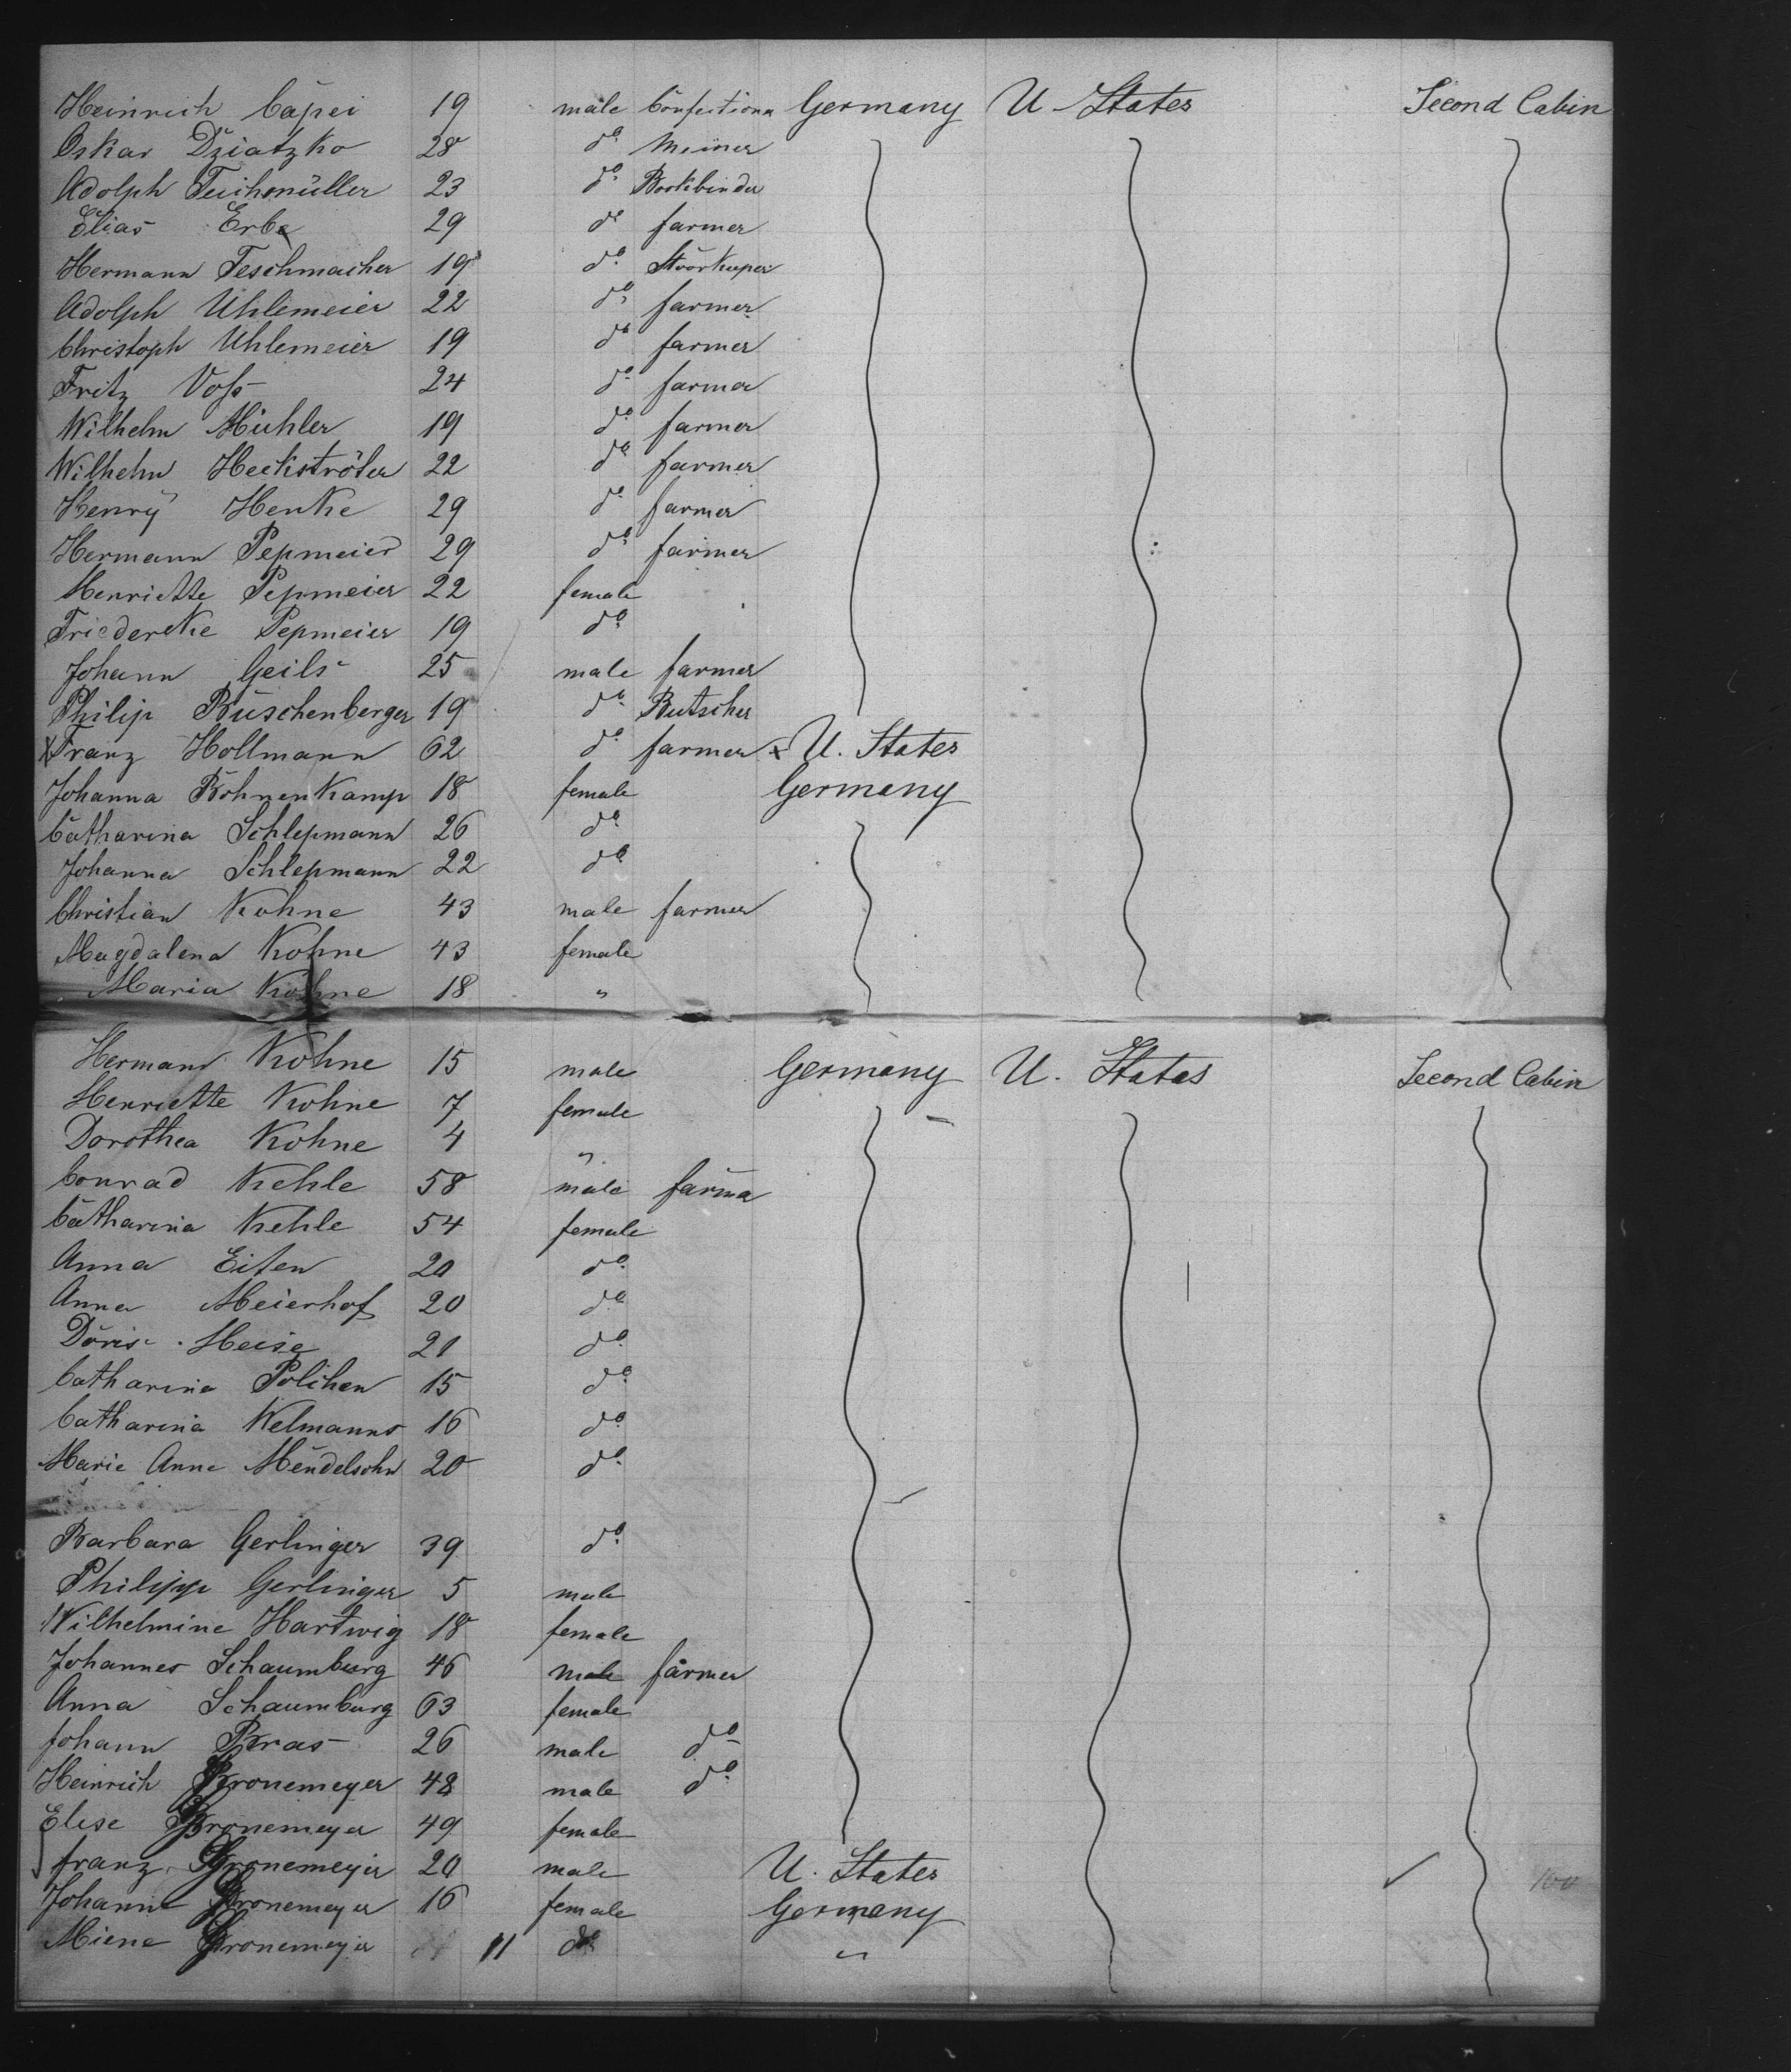 Heinrich Cäpei 19 male Confectiona Germany U States Second Cabin
Oskar Dziatzko 28 do Meiner
Adolph Teichmüller 23 do Bookbinder
Elias Erbe 29 do farmer
Hermann Teschmacher 19 do Stoorkeeper
Adolph Uhlemeier 22 do farmer
Christoph Uhlemeier 19 do farmer
Fritz Voſs 24 do farmer
Wilhelm Mühler 19 do farmer
Wilhelm Heckströter 22 do farmer
Henrÿ Henke 29 do farmer
Hermann Pepmeier 29 do farmer
Henriette Pepmeier 22 female
Friedereke Pepmeier 19 do
Johann Geils 25 male farmer
Philip Büschenberger 19 do Butscher
x Franz Hollmann 62 do farmer x U. States
Johanna Böhnenkamp 18 female Germany
Catharina Schlepmann 26 do
Johanna Schlepmann 22 do
Christian Kohne 43 male farmer
Magdalena Kohne 43 female
Maria Kohne 18 "
Hermann Kohne 15 male Germany U. States Second Cabin
Henriette Kohne 7 female
Dorothea Kohne 4 "
Conrad Kehle 58 male farmer
Catharina Kehle 54 female
Anna Eiten 20 do
Anna Meierhof 20 do
Doris Heise 21 do
Catharina Polihen 15 do
Catharina Kelmanns 16 do
Marie Anne Mendelsohn 20 do
Barbara Gerlinger 39 do
Philipp Gerlinger 5 male
Wilhelmine Hartwig 18 female
Johannes Schaumburg 46 male farmer
Anna Schaumburg 63 female
Johann Bras 26 male do
Heinrich Kronemeyer 48 male do
Elise Kronemeyer 49 female
franz Kronemeyer 20 male U. States 100
Johanne Kronemeyer 16 female Germany
Miene Kronemeyer 11 do "